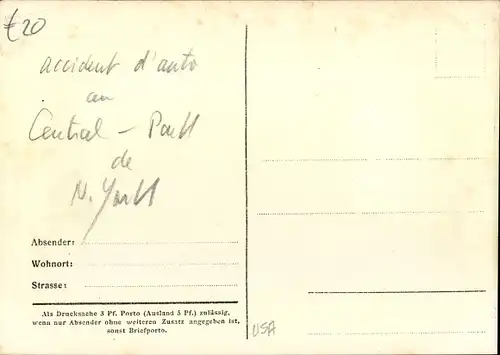 €20
accident d'auto
au
Central - Park
de
N. York
Absender:
Wohnort:
Strasse:
Als Drucksache 3 Pf. Porto (Ausland 5 Pf.) zulässig,
wenn nur Absender ohne weiteren Zusatz angegeben ist,
sonst Briefporto.
USA